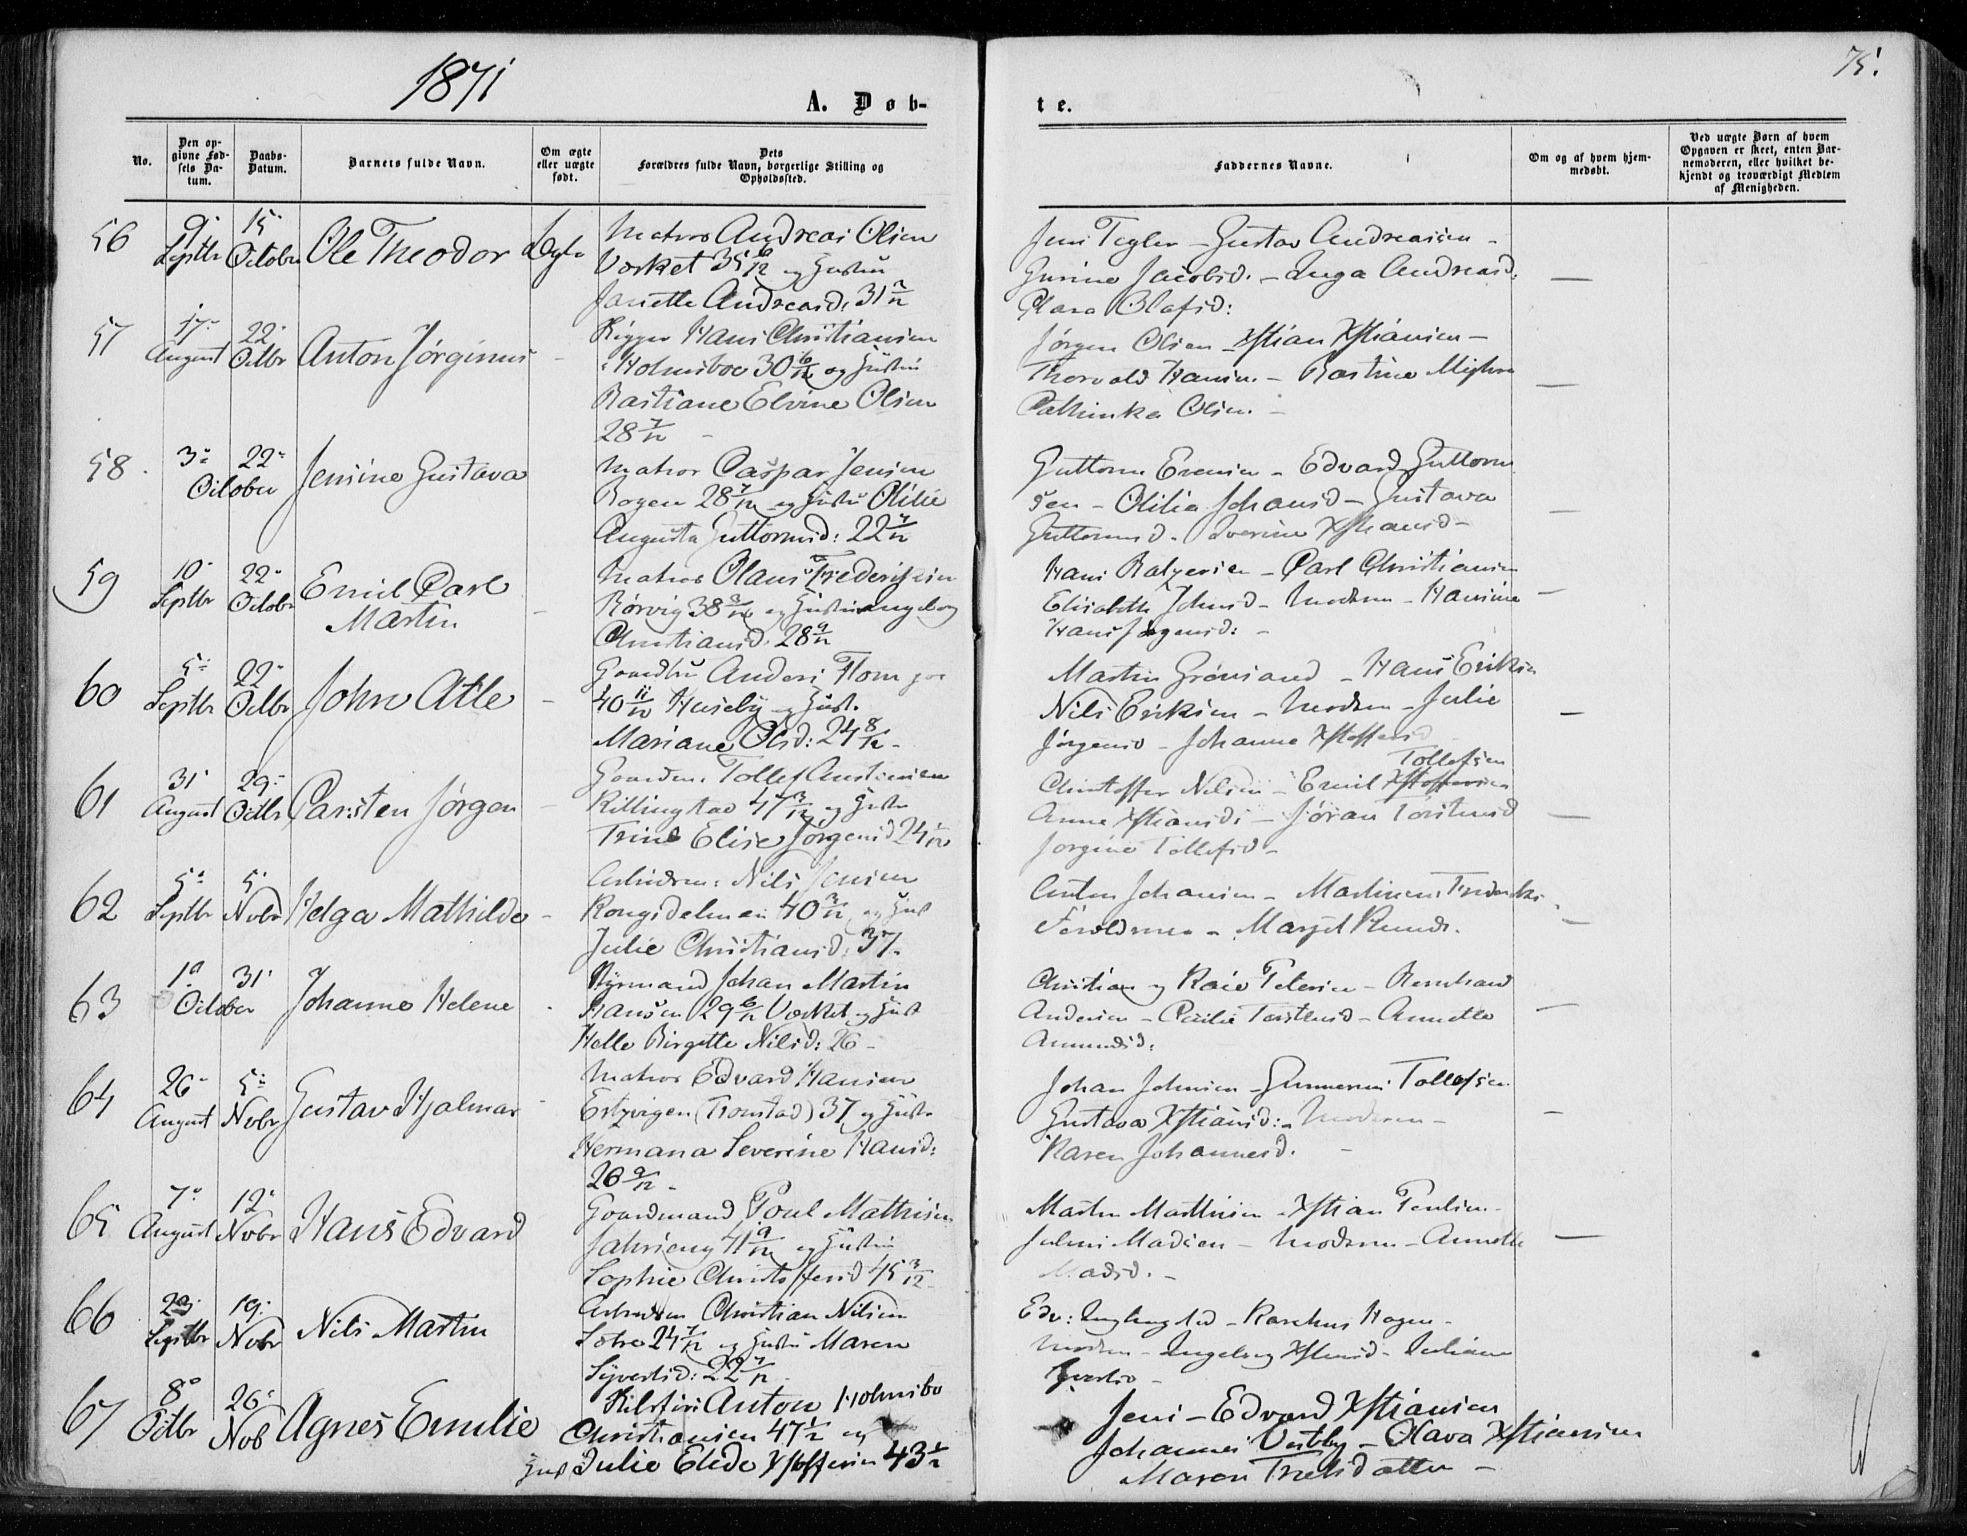 1871
75.
A. Døb-
te.
No.
Den op-
givne Fød-
sels Da-
tum.
Daabs-
Datum.
Barnets fulde Navn.
Om ægte
eller uægte
født.
Dets
Forældres fulde Navn, borgerlige Stilling og
Opholdssted.
Faddernes Navne.
Om og af hvem hjem-
medøbt.
Ved uægte Børn af hvem
Opgaven er skeet, enten Bar-
nemoderen, eller hvilket be-
kjendt og troværdigt Medlem
af Menigheden.
56
9
Septbr
15
October
Ole Theodor
Ægte
Matros Andreas Olsen
Værket 35 6/12 og Hustru
Janette Andreasd. 31
Jens Tegler - Gustav Andreassen -
Gurine Jacobsd. - Inga Andreasd.
Clara Olafsd:
57
17
August
22
Octbr
Anton Jørginus
Rigger Hans Christiansen
Holmsboe 30 6/12 og Hustru
Bastiane Elvine Olsen
28 7/12
Jørgen Olsen - Xstian Xstiansen -
Thorvald Hansen - Bastine
Cathinka Olsen -
58
3
22
October
Jensine Gustava
Matros Caspar Jensen
Bogen 28 7/12 og Hustru Otilie
Augusta Guttormsd: 22
Guttorm Evensen - Edvard Guttorm
sen - Otilia Johansd - Gustava
Guttormsd. Severine Xstiansd -
59
10
Septbr
22
Octobr
Emil Carl
Martin
Matros Olaus Frederiksen
Rørvig 38 og Hustru Ingeborg
Christiansd. 28 9/12
Hans Balzersen - Carl Christiansen
Elisabeth Johnsd - Modren - Hansine
Hans Jørgensd: -
60
5
Septbr
22
Octbr
John Atle
Anders Flom
40 11/12 Huseby og Hust.
Mariane Olsd: 24 8/12 -
Martin Grønsand - Hans Eriksen
Nils Eriksen - Modren - Julie
Jørgensd - Johanne Xstoffersd
61
31
August
29
Octbr
Carsten Jørgen
Gaardm. Tollef Anstensen
Killingstad 47 3/12 og Hustru
Trine Elise Jørgensd 24
Tollefsen
Christoffer Nilsen - Emil Xstoffersen
Anna Xstiansd: - Jøran Torstensd
Jørgine Tollefsd -
62
5
Septbr
5
Nobr
Helga Mathilde
Nils Jensen
Kongsdelmen 40 3/12 og Hust
Julie Christiansd. 37 -
Anton Johansen - Martinius Frederiks
Forældrene - Margit
63
1
31
October
Johanne Helene
Styrmand Johan Martin
Hansen 29 6/12 Værket og Hust
Helle Birgitte Nilsd: 26 -
Christian og Kaia Petersen - Bernhard
Andersen - Cecilie Torstensd - Annette
Amundsd:
64
26
August
5
Nobr
Gustav Hjalmar
Matros Edvard Hansen
Ertzvigen (Tronstad) 37 og Hustru
Hermana Severine Hansd:
26 9/12 -
Johan Johnsen - Gunnerius Tollefsen
Gustava Xstiansd: - Modren -
Karen Johannesd. -
65
7
August
12
Nobr
Hans Edvard
Gaardmand Poul Mathisen
41 9/12 og Hustru
Sophie Christoffersd 45 3/12 -
Martin Mathisen - Xstian Poulsen -
Julius Madsen - Modren - Annette
Madsd. -
66
29
Septbr
19
Nobr
Nils Martin
Christian Nilsen
24 7/12 og Hustru Maren
Syversd: 22 7/12 -
Edv: - Hagen -
Modren - Ingeborg - Juliane
67
8
Octbr
26
Nob
Agnes Emilie
Anton Holmsbo
Christiansen 47 1/2 og
Hust Julie Elede Xstoffersen 43 1/2
Jens - Edvard Xstiansen
Johannes Vestby - Olava Xstiansen
Maren Trulsdatter -